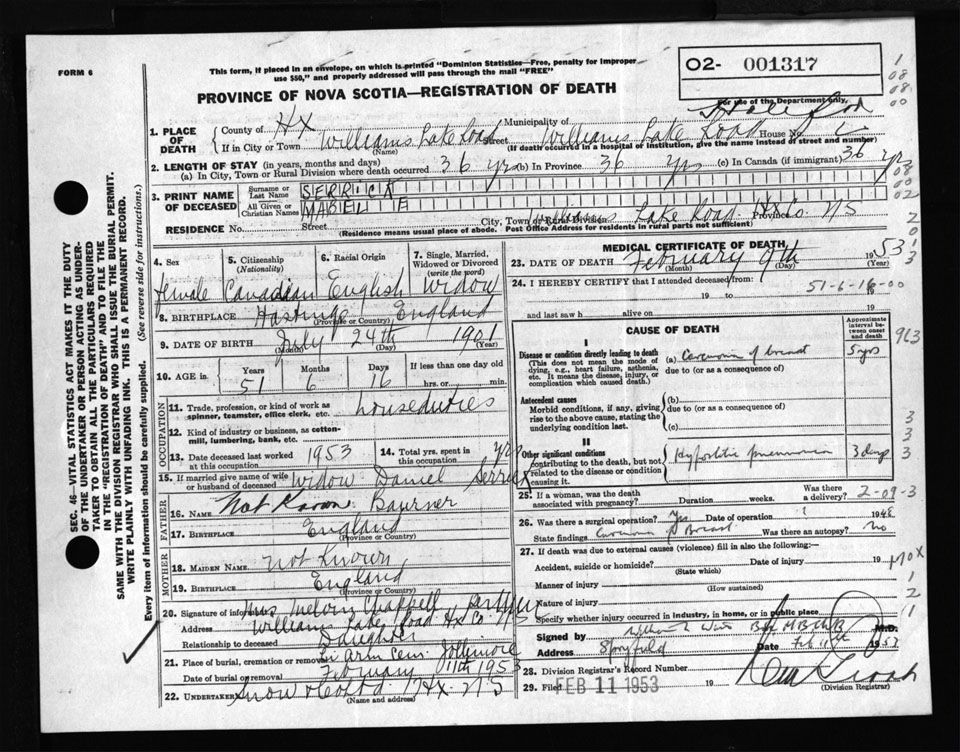 FORM 6
This form, if placed in an envelope, on which is printed "Dominion Statistics—Free, penalty for improper
use $50," and properly addressed will pass through the mail "FREE"
02- 001317
For use of the Department only.
PROVINCE OF NOVA SCOTIA—REGISTRATION OF DEATH
1. PLACE OF DEATH
County of Hx Municipality of
If in City or Town Williams Lake Road Street Williams Lake Road House No.
(Name) (If death occurred in a hospital or institution, give the name instead of street and number)
2. LENGTH OF STAY (in years, months and days)
(a) In City, Town or Rural Division where death occurred 36 yrs (b) In Province 36 yrs (c) In Canada (if immigrant) 36 yrs
3. PRINT NAME OF DECEASED
Surname or Last Name SERRICK
All Given or Christian Names MABEL E
RESIDENCE No. Street City, Town or Rural Division Williams Lake Road Hx Co. Province NS
(Residence means usual place of abode. Post Office Address for residents in rural parts not sufficient)
4. Sex female
5. Citizenship (Nationality) Canadian
6. Racial Origin English
7. Single, Married, Widowed or Divorced (write the word) Widow
8. BIRTHPLACE Hastings England
(Province or Country)
9. DATE OF BIRTH July 24th 1901
(Month) (Day) (Year)
10. AGE in Years 51 Months 6 Days 16 If less than one day old hrs. or min.
OCCUPATION
11. Trade, profession or kind of work as spinner, teamster, office clerk, etc. houseduties
12. Kind of industry or business, as cotton-mill, lumbering, bank, etc.
13. Date deceased last worked at this occupation 1953
14. Total yrs. spent in this occupation yrs
15. If married give name of wife or husband of deceased widow Daniel Serrick
FATHER
16. NAME Not Known Bourner
17. BIRTHPLACE England
(Province or Country)
MOTHER
18. MAIDEN NAME Not Known
19. BIRTHPLACE England
(Province or Country)
20. Signature of informant Mrs Melvin Chappell
Address Williams Lake Road Hx Co. NS
Relationship to deceased Daughter
21. Place of burial, cremation or removal Arm Cem. Jollimore
Date of burial or removal February 11th 1953
22. UNDERTAKER Snow & Co Ltd Hx. NS
(Name and address)
MEDICAL CERTIFICATE OF DEATH
23. DATE OF DEATH February 9th 1953
(Month) (Day) (Year)
24. I HEREBY CERTIFY that I attended deceased from:
51-6-16-00
19 to 19
and last saw h alive on 19
CAUSE OF DEATH
Approximate interval between onset and death
I
Disease or condition directly leading to death
(This does not mean the mode of dying, e.g., heart failure, asthenia, etc. It means the disease, injury, or complication which caused death.)
(a) Carcinoma of breast 5 yrs
due to (or as a consequence of)
Antecedent causes
Morbid conditions, if any, giving rise to the above cause, stating the underlying condition last.
(b)
due to (or as a consequence of)
(c)
II
Other significant conditions
contributing to the death, but not related to the disease or condition causing it.
pneumonia 3 days
25. If a woman, was the death associated with pregnancy? Duration weeks. Was there a delivery?
2-09-3
26. Was there a surgical operation? Yes Date of operation ? 1948
State findings Carcinoma of Breast Was there an autopsy? no
27. If death was due to external causes (violence) fill in also the following:—
Accident, suicide or homicide? Date of injury 19
(State which)
Manner of injury
(How sustained)
Nature of injury
Specify whether injury occurred in industry, in home, or in public place
Signed by M.D.
Address Spryfield Date Feb 11 1953
28. Division Registrar's Record Number
29. Filed FEB 11 1953 19
(Division Registrar)
SEC. 46—VITAL STATISTICS ACT MAKES IT THE DUTY
OF THE UNDERTAKER OR PERSON ACTING AS UNDER-
TAKER TO OBTAIN ALL THE PARTICULARS REQUIRED
IN THE "REGISTRATION OF DEATH" AND TO FILE THE
SAME WITH THE DIVISION REGISTRAR WHO SHALL ISSUE THE BURIAL PERMIT.
WRITE PLAINLY WITH UNFADING INK. THIS IS A PERMANENT RECORD.
Every item of information should be carefully supplied. (See reverse side for instructions.)